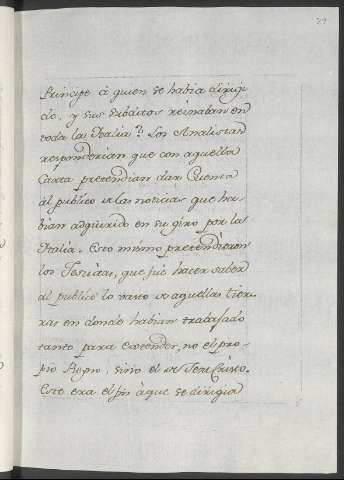 29
Principe à quien se habia dirigi-
do, y sus subditos reinaban en
toda la Italia? Los Analistas
responderian que con aquella
Carta pretendian dar Cuenta
al publico de las noticias que ha-
bian adquirido en su giro por la
Italia. Esto mismo pretendieron
los Jesuitas, que fue hacer saber
al publico lo vasto de aquellas tier-
ras en donde habian trabajado
tanto para extender, no el pro-
pio Reyno, sino el de Jesu Cristo.
Este era el fin à que se dirigia